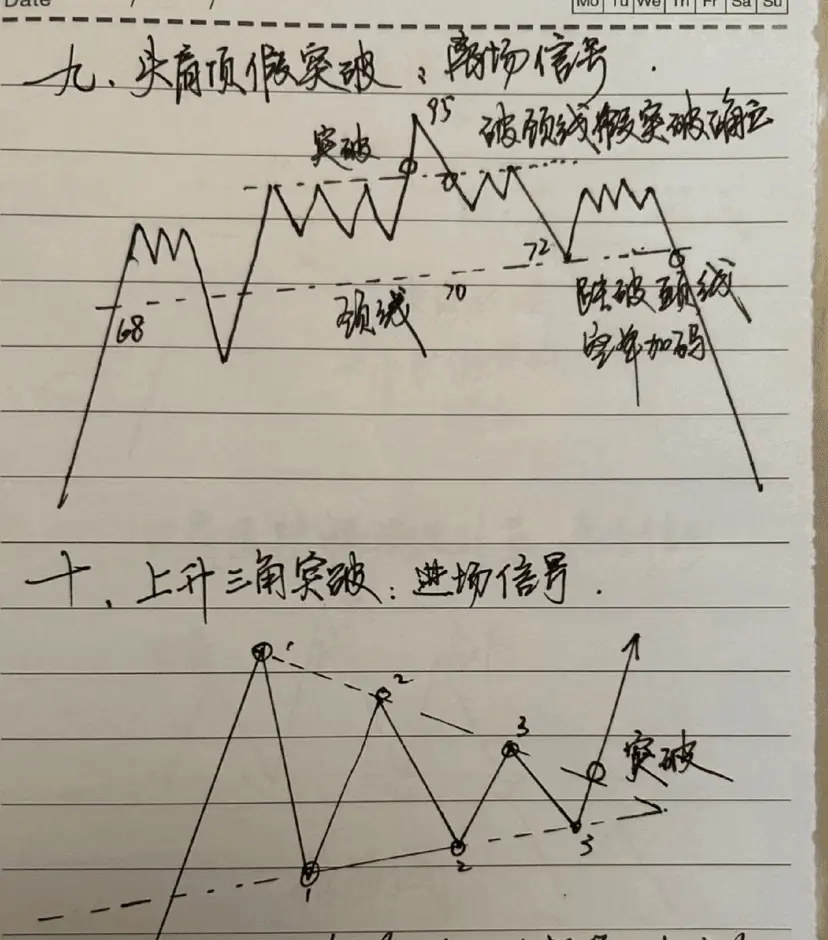 Date / /
Mo Tu We Th Fr Sa Su
九、头肩顶假突破：离场信号.
95
突破
破颈线假突破确立
72
70
68
颈线
跌破颈线
空单加码
十、上升三角突破：进场信号.
1
2
3
突破
1
2
3